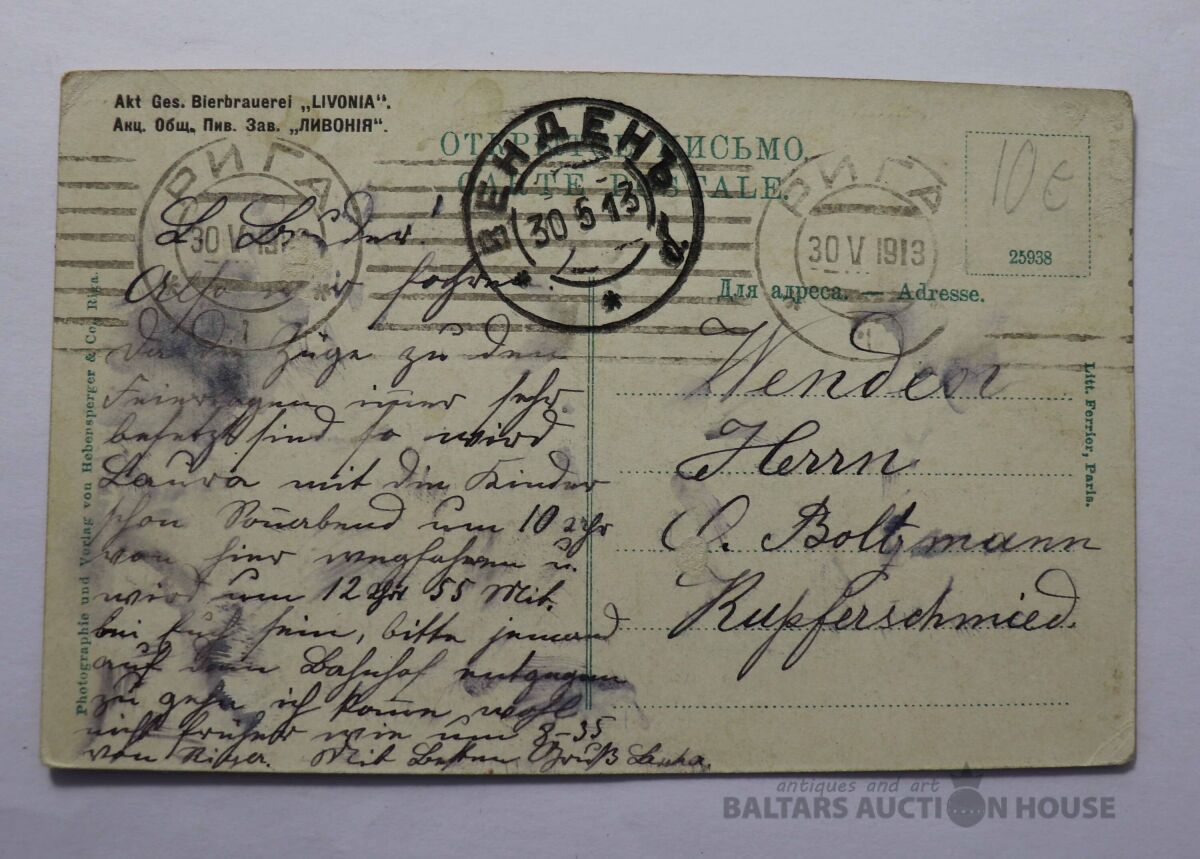 Akt Ges. Bierbrauerei „LIVONIA“.
Акц. Общ. Пив. Зав. „ЛИВОНІЯ“.
ОТКРЫТОЕ ПИСЬМО.
CARTE POSTALE.
РИГА
30 V 1913
1
ВЕНДЕНЪ
30 5 13
РИГА
30 V 1913
1
10 €
25938
Для адреса. — Adresse.
L. Bruder!
Also wir fahren.
Da die Züge zu den
Feiertagen immer sehr
besetzt sind so wird
Laura mit die Kinder
schon Sonnabend um 10 Uhr
von hier wegfahren u.
wird um 12 Uhr 55 Mit.
bei Euch sein, bitte jemand
auf dem Bahnhof entgegen
zu gehn ich komme wohl
nicht früher wie um 8-35
von Riga. Mit Besten Gruß
Wenden
Herrn
O. Boltzmann
Kupferschmied.
Photographie und Verlag von Hebensperger & Co., Riga.
Litt. Ferrier, Paris.
antiques and art
BALTARS AUCTION HOUSE